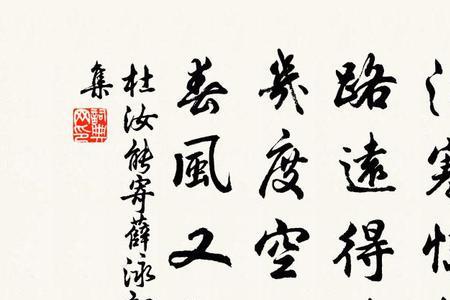 寒
路遠得
幾度空
春風又
杜汝能寄薛泳
集
詞典
网印